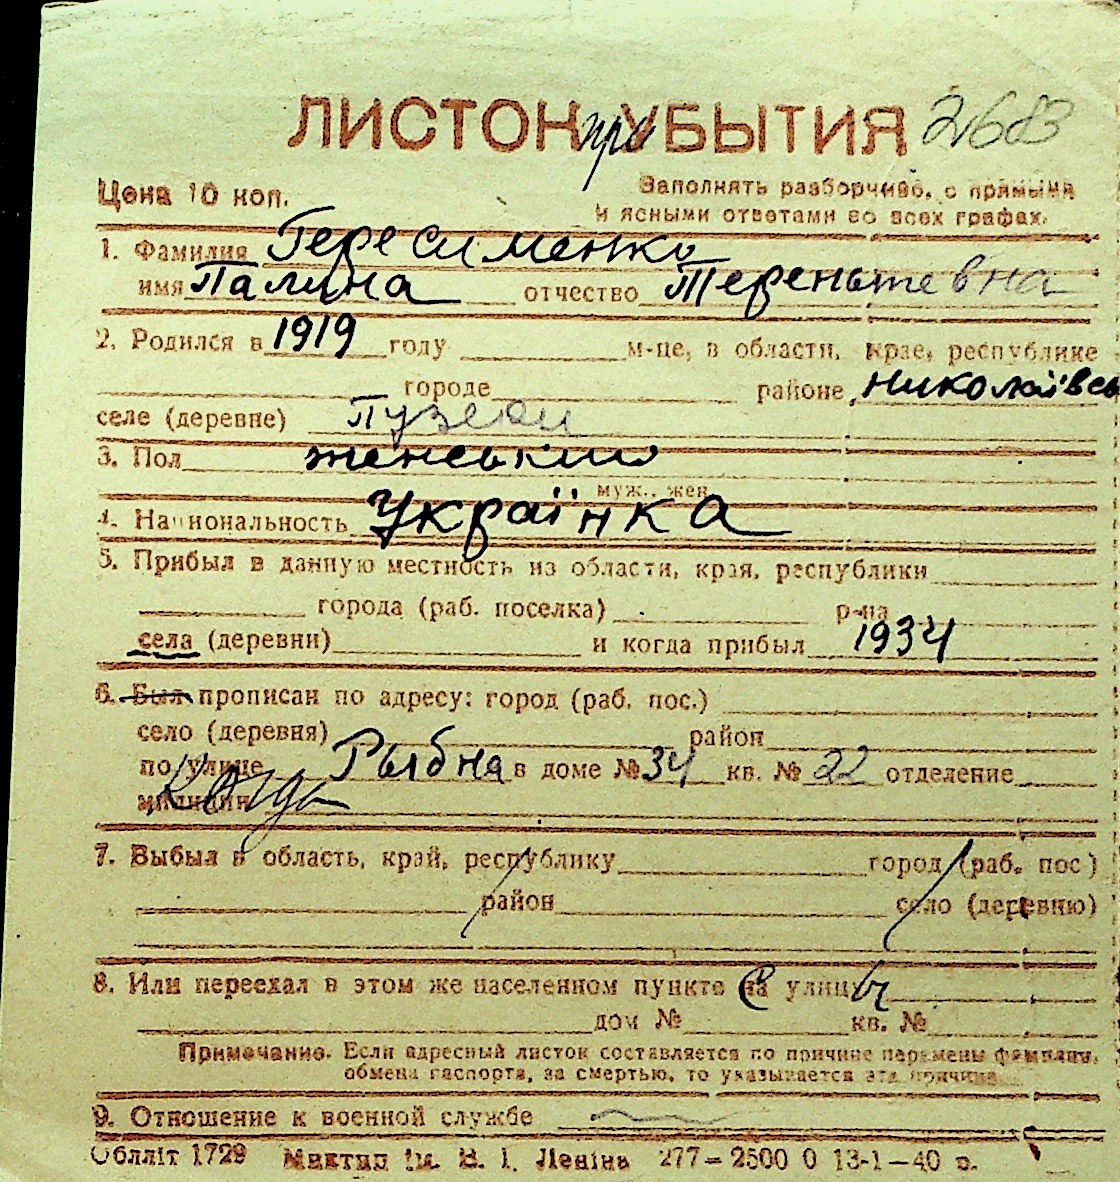 ЛИСТОК УБЫТИЯ 2683
при
Цена 10 коп. Заполнять разборчиво, с прямыми
и ясными ответами во всех графах.
1. Фамилия Гересименко
имя Палина отчество Тереньтевна
2. Родился в 1919 году м-це, в области, крае, республике
городе районе, николаївсь
селе (деревне)
3. Пол женський
муж., жен
4. Национальность Українка
5. Прибыл в данную местность из области, края, республики
города (раб. поселка) р-на
села (деревни) и когда прибыл 1934
6. Был прописан по адресу: город (раб. пос.)
село (деревня) район
по улице Рыбна в доме № 34 кв. № 22 отделение
милиции
7. Выбыл в область, край, республику город (раб. пос)
район село (деревню)
8. Или переехал в этом же населенном пункте на улицу
дом № кв. №
Примечание. Если адресный листок составляется по причине перемены фамилии,
обмена паспорта, за смертью, то указывается эта причина
9. Отношение к военной службе
Облліт 1729 ім. В. І. Леніна 277–2500 0 13-1–40 р.